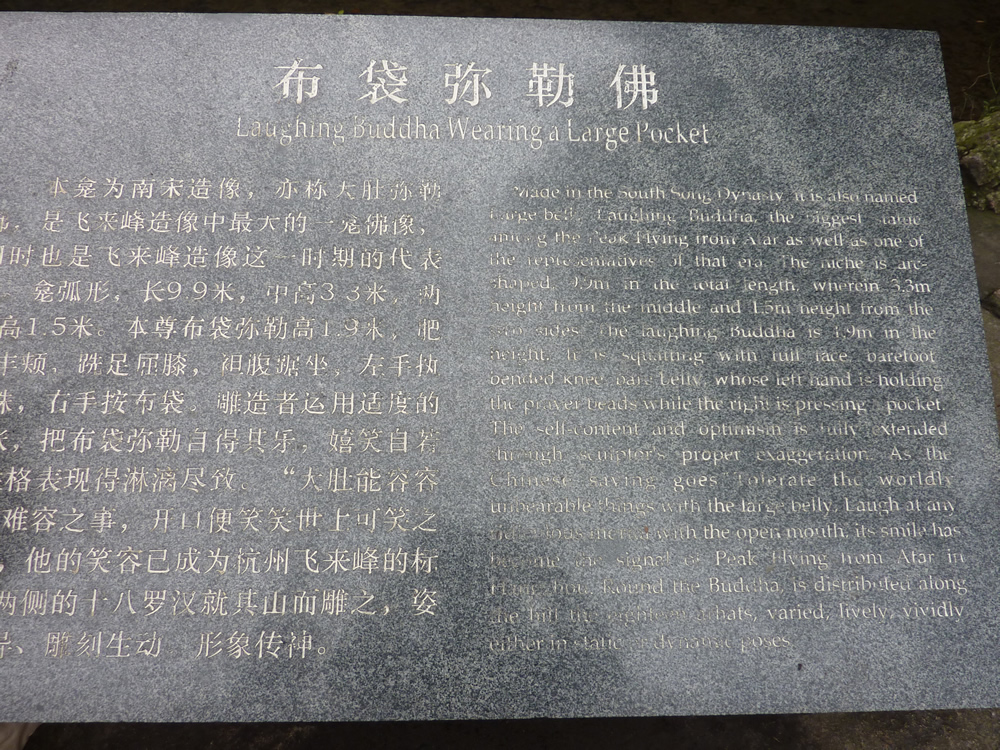 布袋弥勒佛
Laughing Buddha Wearing a Large Pocket
本龛为南宋造像，亦称大肚弥勒
是飞来峰造像中最大的一龛佛像，
时也是飞来峰造像这一时期的代表
龛弧形，长9.9米，中高3.3米，两
高1.5米。本尊布袋弥勒高1.9米，肥
丰颊，跣足屈膝，袒腹踞坐，左手执
珠，右手按布袋。雕造者运用适度的
张，把布袋弥勒自得其乐，嬉笑自若
格表现得淋漓尽致。“大肚能容容
难容之事，开口便笑笑世上可笑之
，他的笑容已成为杭州飞来峰的标
两侧的十八罗汉就其山而雕之，姿
异、雕刻生动 形象传神。
Made in the South Song Dynasty, it is also named
Large-belly Laughing Buddha, the biggest statue
among the Peak Flying from Afar as well as one of
the representatives of that era. The niche is arc-
shaped, 9.9m in the total length, wherein 3.3m
height from the middle and 1.5m height from the
two sides. The laughing Buddha is 1.9m in the
height. It is squatting with full face, barefoot,
bended knee, bare belly, whose left hand is holding
the prayer beads while the right is pressing a pocket.
The self-content and optimism is fully extended
through sculptor's proper exaggeration. As the
Chinese saying goes Tolerate the worldly
unbearable things with the large belly, Laugh at any
with the open mouth, its smile has
become the signal of Peak Flying from Afar in
Hangzhou. Round the Buddha, is distributed along
the hill the eighteen arhats, varied, lively, vividly
either in static or dynamic poses.